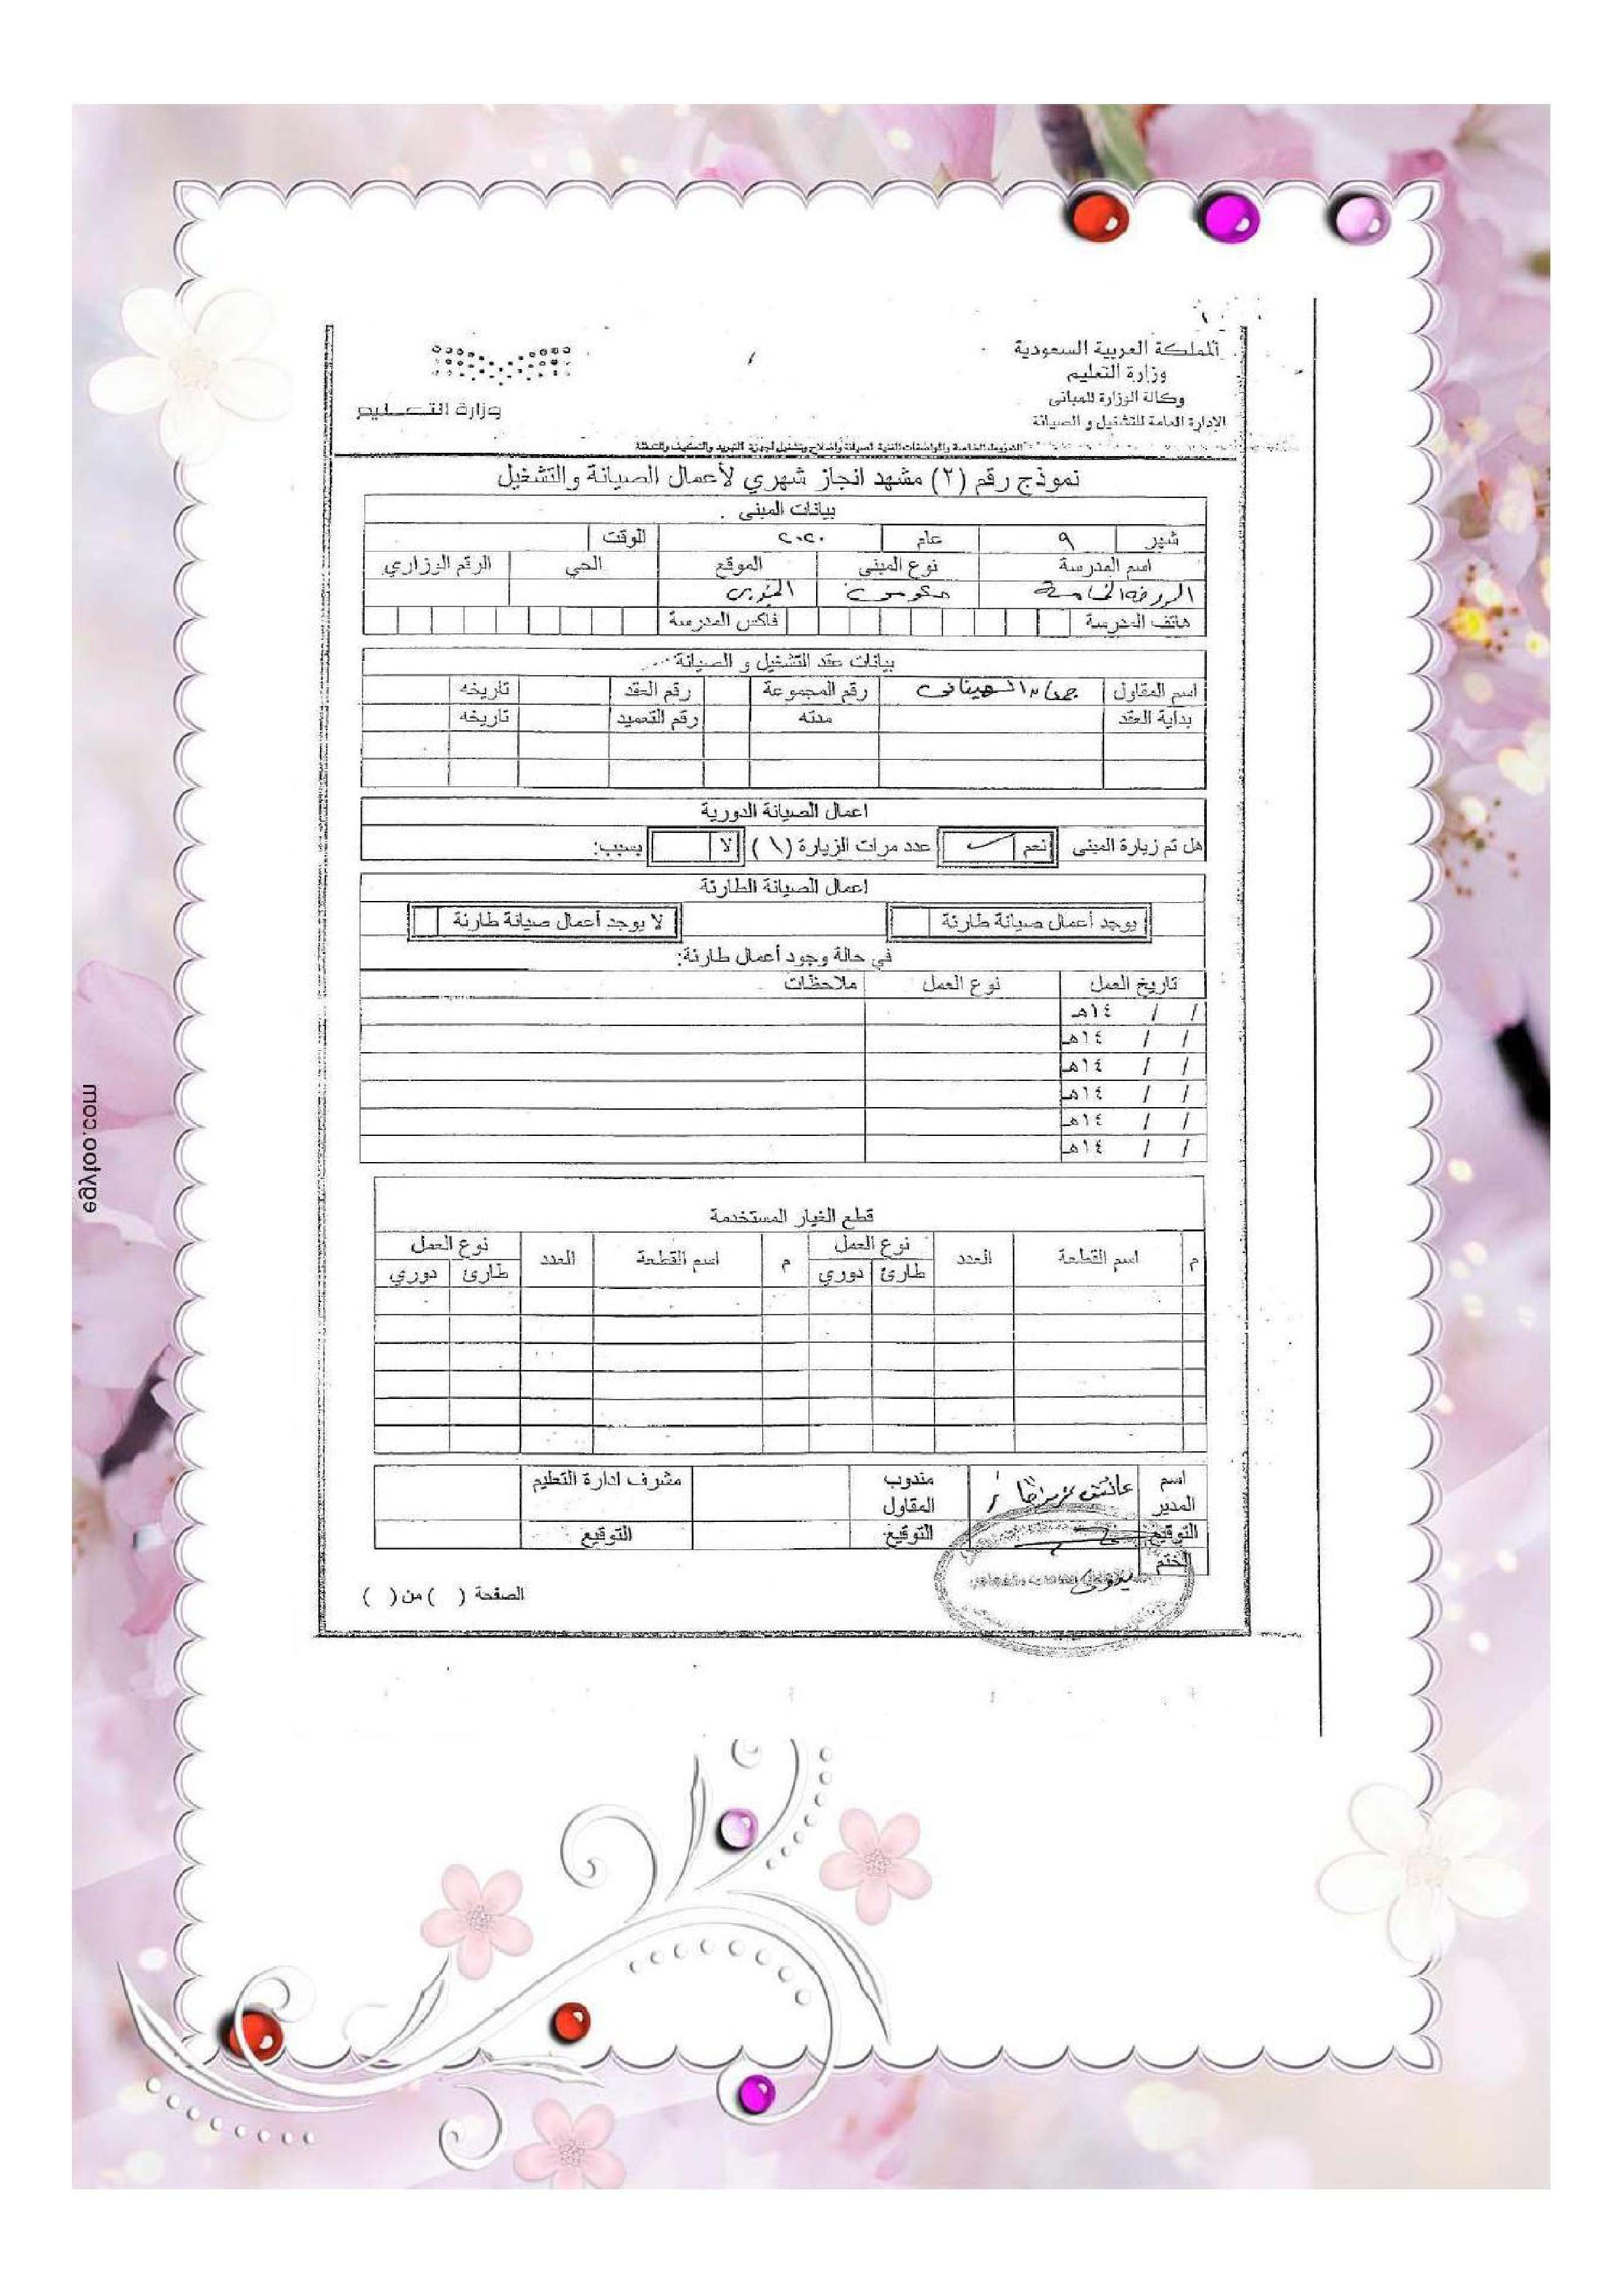 المملكة العربية السعودية
وزارة التعليم
وكالة الوزارة للمباني
الإدارة العامة للتشغيل و الصيانة
وزارة التعليم
الشروط الخاصة والمواصفات الفنية لصيانة وإصلاح وتشغيل أجهزة التبريد والتكييف والتدفئة
نموذج رقم (٢) مشهد انجاز شهري لأعمال الصيانة والتشغيل
بيانات المبنى
شهر ٩ عام ٢٠٢٠ الوقت
اسم المدرسة نوع المبنى الموقع الحي الرقم الوزاري
الروضة الخامسة
هاتف المدرسة فاكس المدرسة
بيانات عقد التشغيل و الصيانة
اسم المقاول رقم المجموعة رقم العقد تاريخه
بداية العقد مدته رقم التعميد تاريخه
اعمال الصيانة الدورية
هل تم زيارة المبنى نعم عدد مرات الزيارة (١) لا بسبب:
اعمال الصيانة الطارئة
يوجد أعمال صيانة طارئة لا يوجد أعمال صيانة طارئة
في حالة وجود أعمال طارئة:
تاريخ العمل نوع العمل ملاحظات
/ / ١٤هـ
/ / ١٤هـ
/ / ١٤هـ
/ / ١٤هـ
/ / ١٤هـ
/ / ١٤هـ
قطع الغيار المستخدمة
م اسم القطعة العدد نوع العمل م اسم القطعة العدد نوع العمل
طارئ دوري طارئ دوري
اسم المدير مندوب المقاول مشرف ادارة التعليم
التوقيع التوقيع التوقيع
الختم
الصفحة ( ) من ( )
egyfoo.com